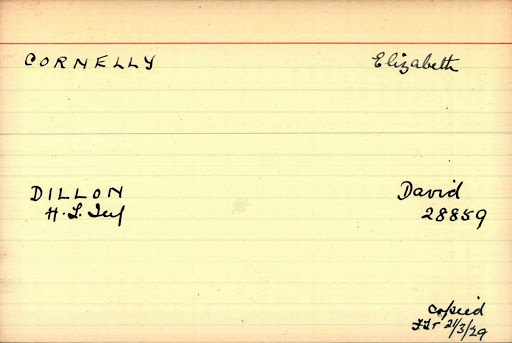 CORNELLY Elizabeth
DILLON David
H. L. Inf 28859
copied
21/3/29